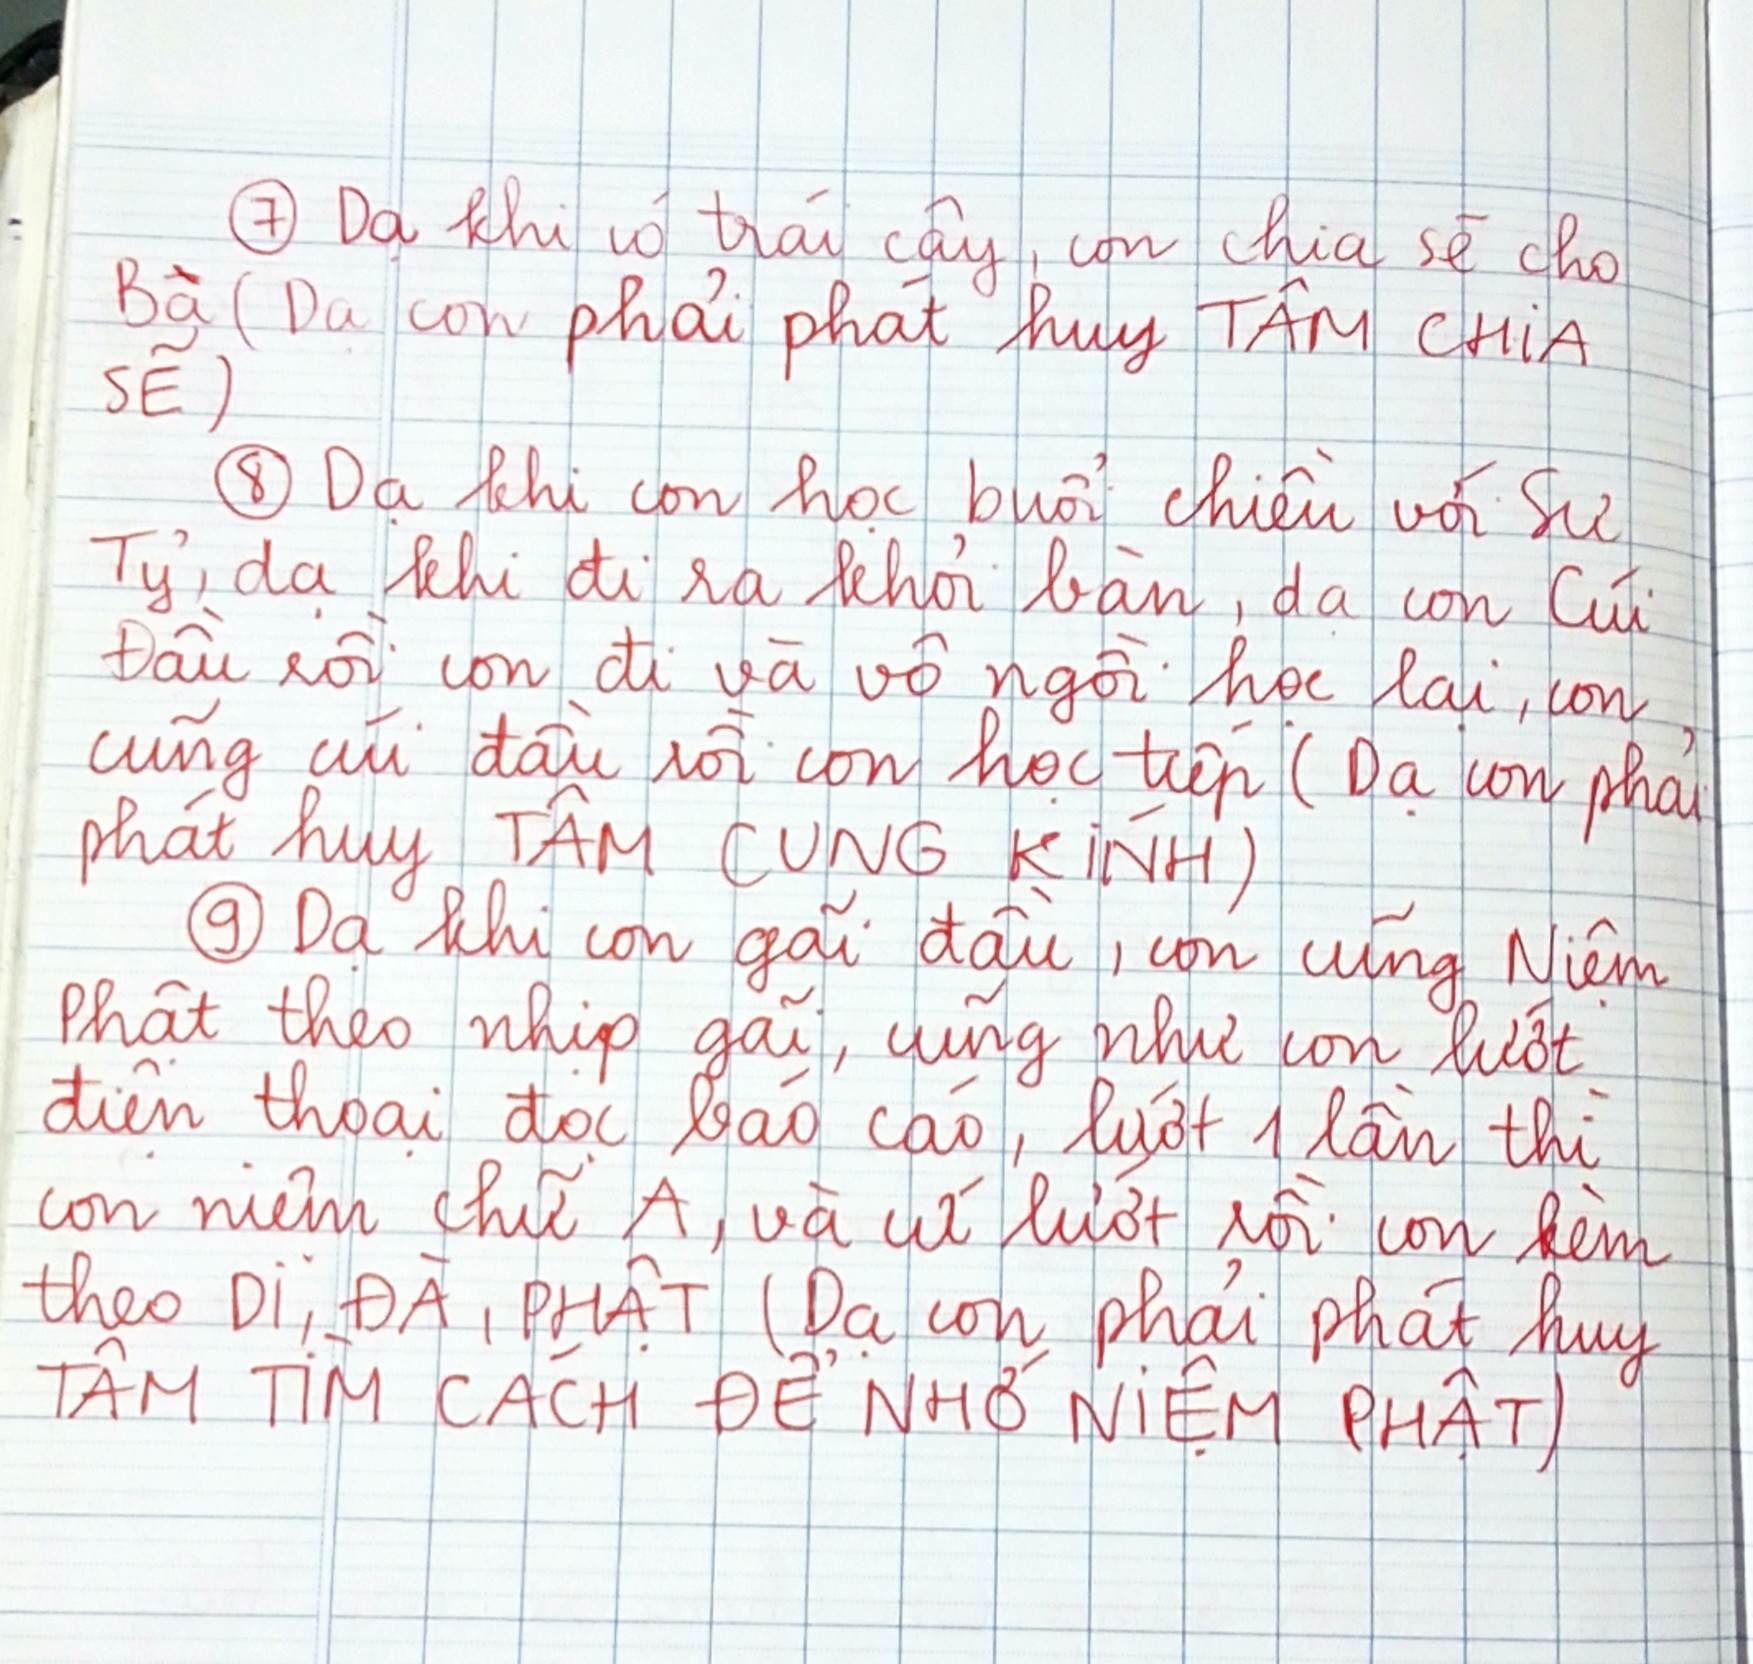 ⑦ Dạ khi có trái cây, con chia sẽ cho
Bà (Dạ con phải phát huy TÂM CHIA
SẼ)
⑧ Dạ khi con học buổi chiều với Sư
Tỷ, dạ khi đi ra khỏi bàn, dạ con Cúi
Đầu rồi con đi và vô ngồi học lại, con
cũng cúi đầu rồi con học tiếp (Dạ con phải
phát huy TÂM CUNG KÍNH)
⑨ Dạ khi con gãi đầu, con cũng Niệm
Phật theo nhịp gãi, cũng như con lướt
điện thoại đọc báo cáo, lướt 1 lần thì
con niệm chữ A, và cứ lướt rồi con kèm
theo DI, ĐÀ, PHẬT (Dạ con phải phát huy
TÂM TÌM CÁCH ĐỂ NHỚ NIỆM PHẬT)